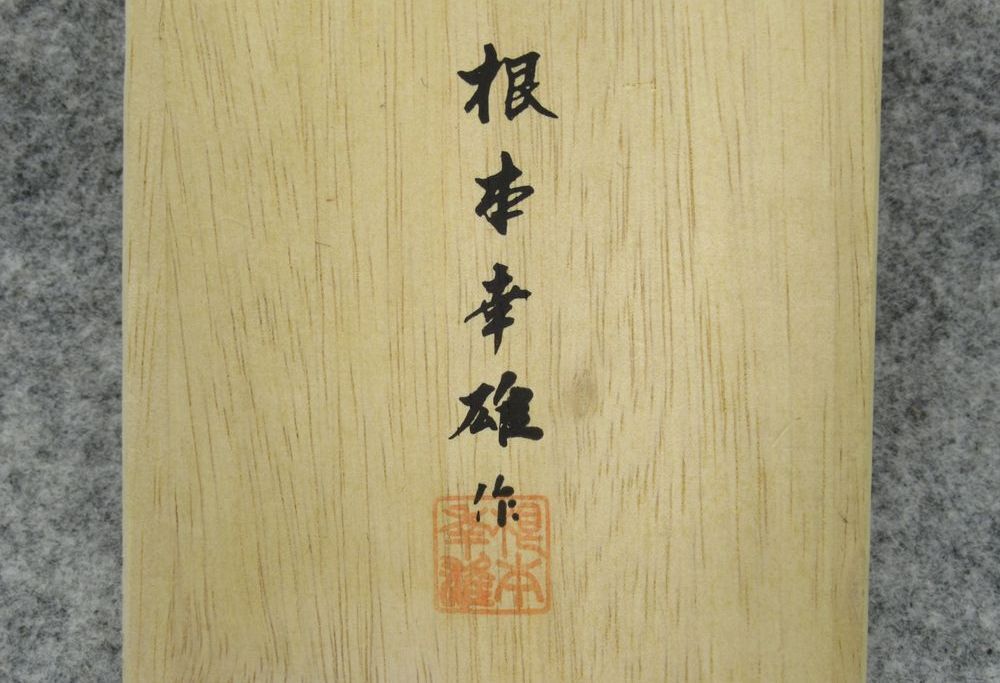 根本幸雄作
根本
幸雄